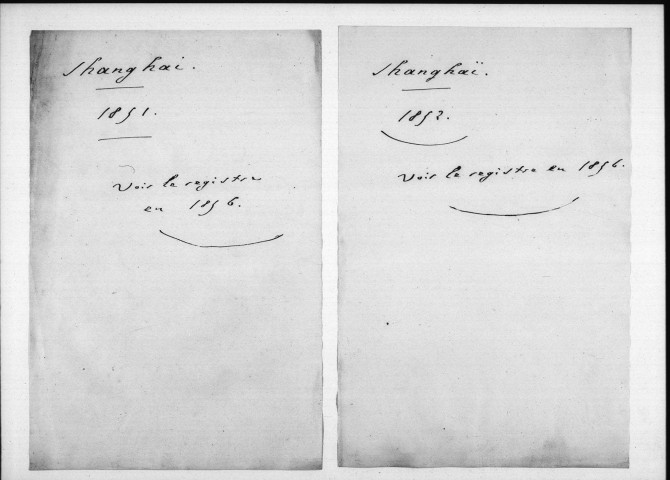 Shanghai.
1851.
Voir le registre
en 1856.
Shanghaï.
1852.
Voir le registre en 1856.